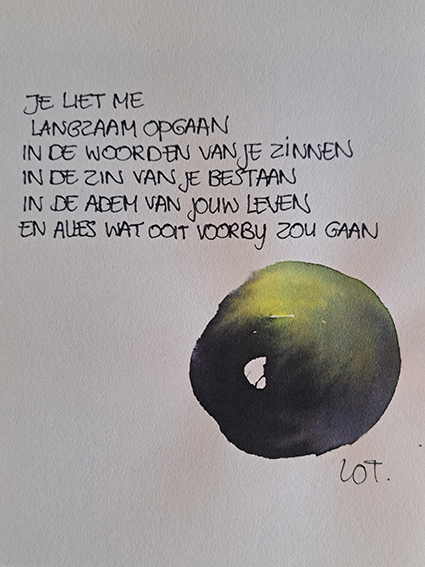 JE LIET ME
LANGZAAM OPGAAN
IN DE WOORDEN VAN JE ZINNEN
IN DE ZIN VAN JE BESTAAN
IN DE ADEM VAN JOUW LEVEN
EN ALLES WAT OOIT VOORBY ZOU GAAN
LOT.